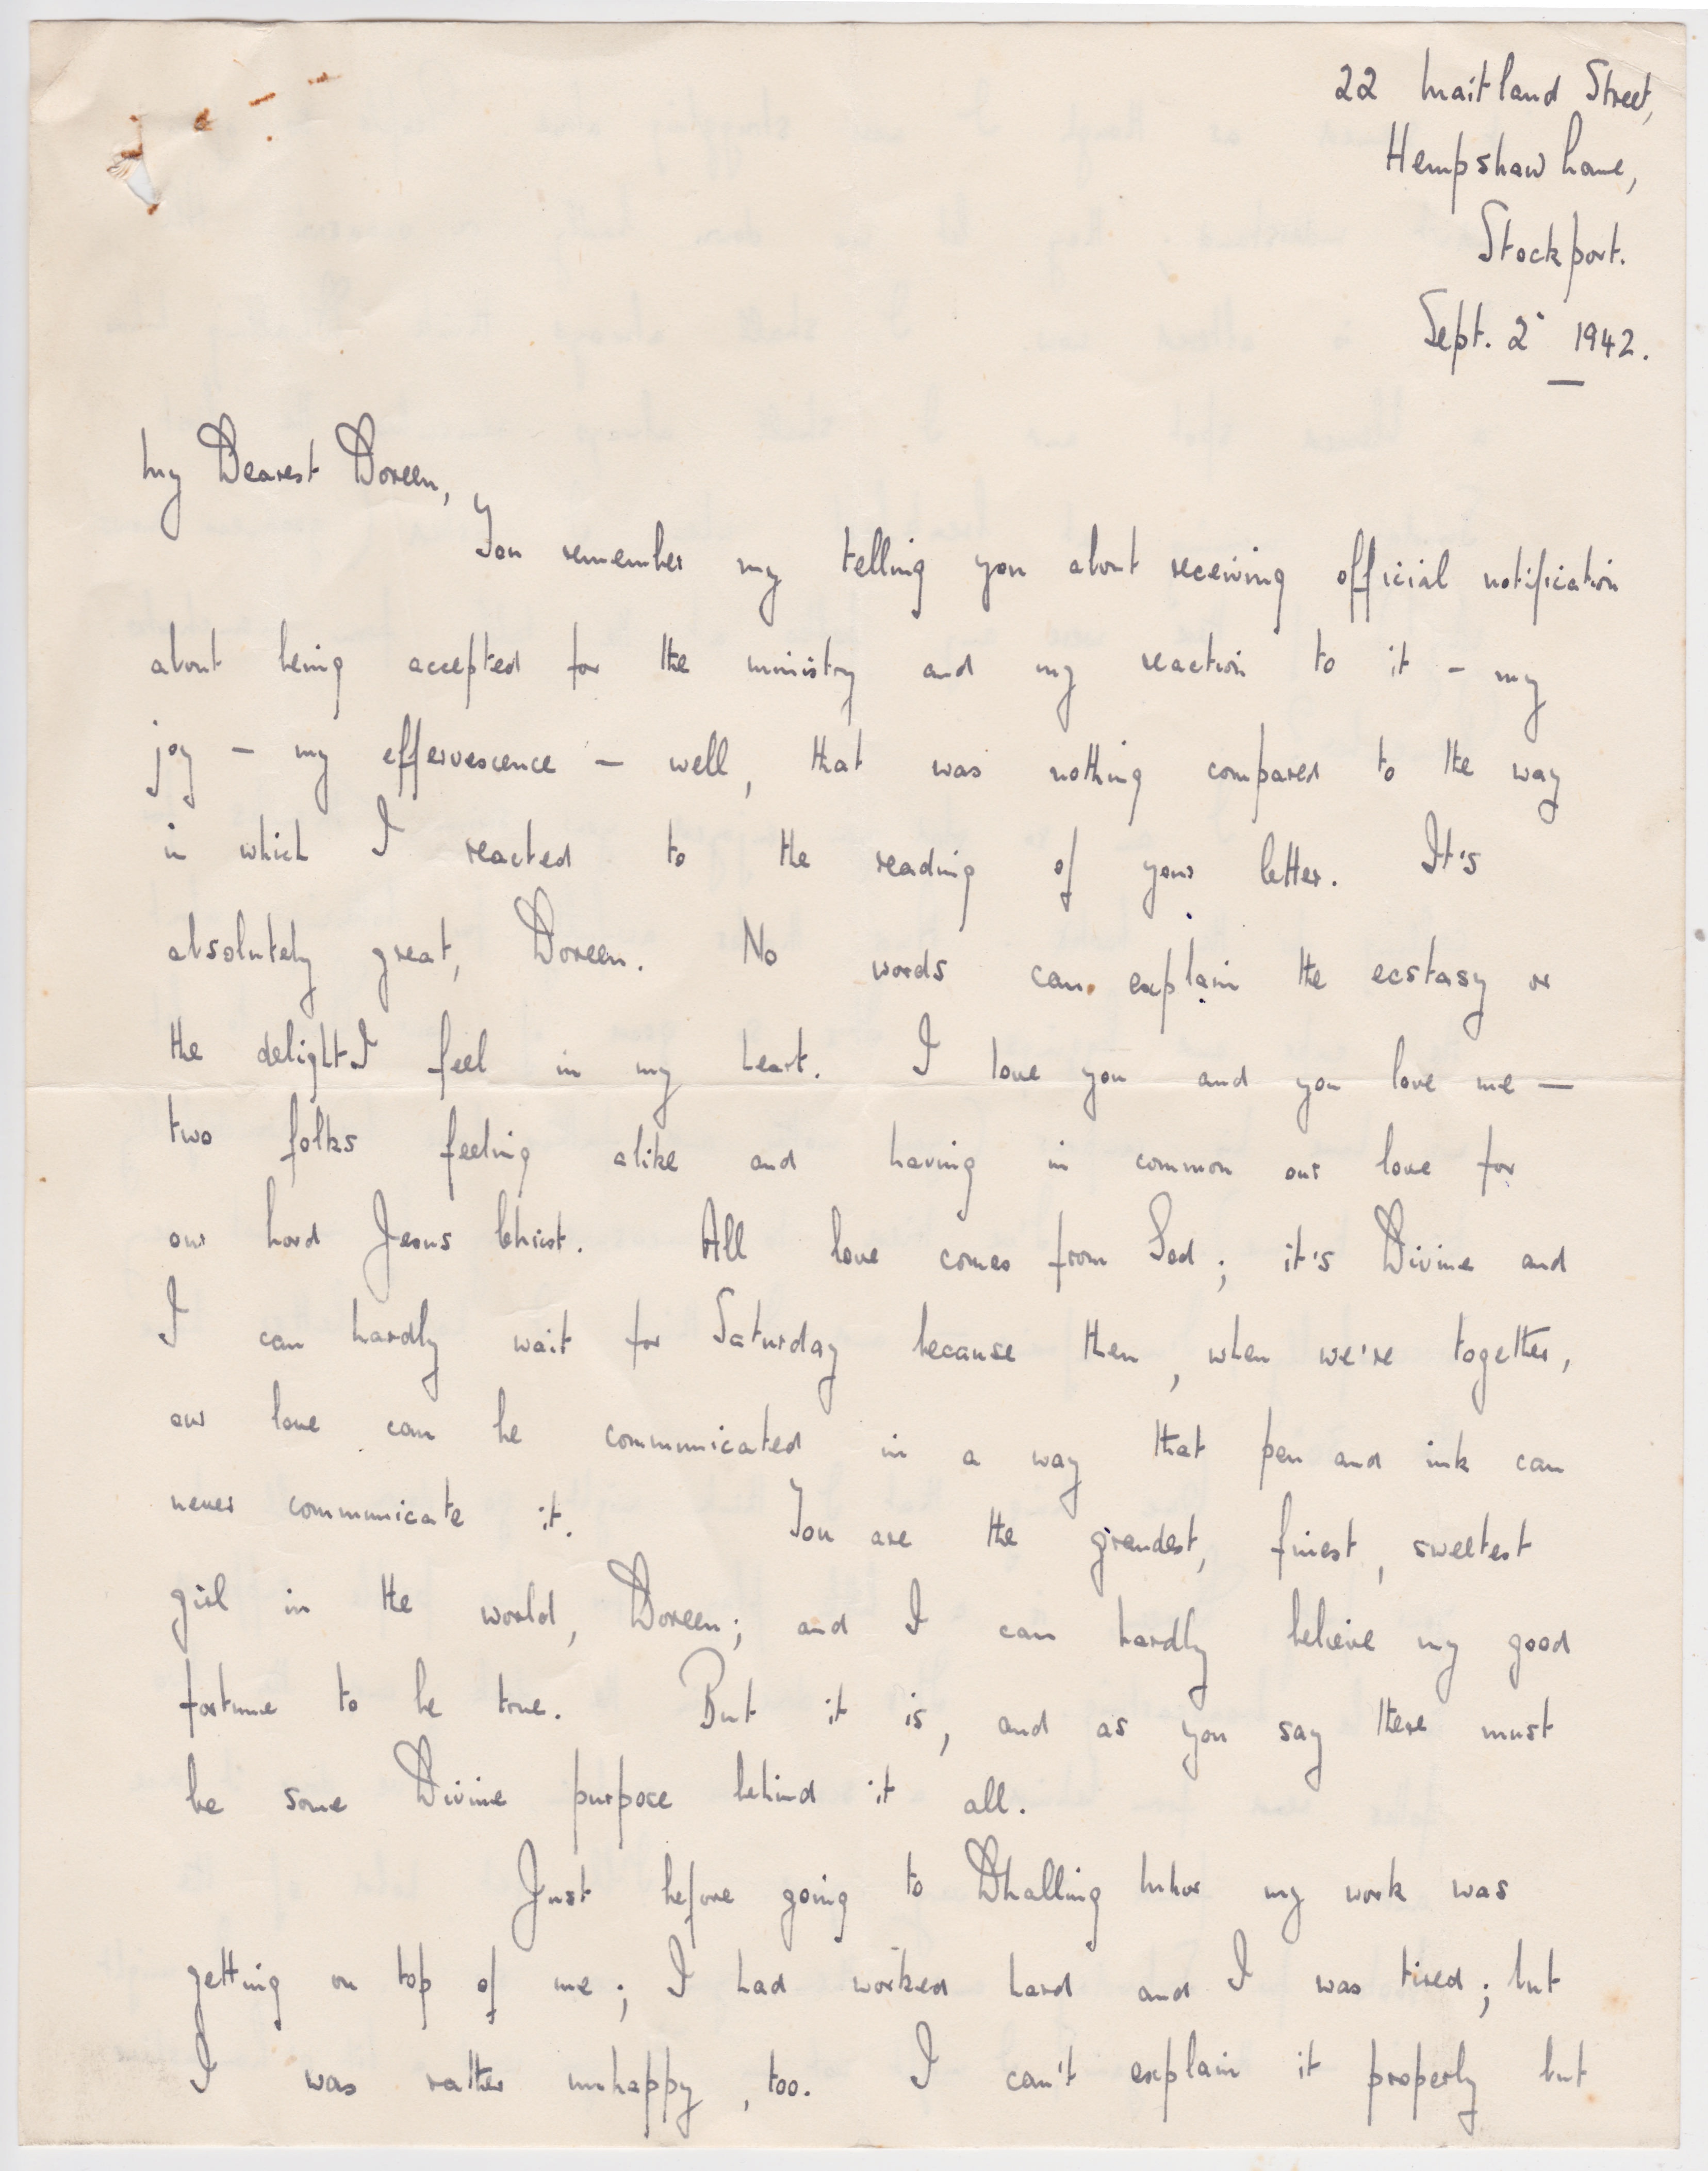 22 Maitland Street,
Hempshaw Lane,
Stockport.
Sept. 2 1942.
My Dearest Doreen,
You remember my telling you about receiving official notification
about being accepted for the ministry and my reaction to it - my
joy - my effervescence - well, that was nothing compared to the way
in which I reacted to the reading of your letter. It's
absolutely great, Doreen. No words can explain the ecstasy or
the delight I feel in my heart. I love you and you love me -
two folks feeling alike and having in common our love for
our Lord Jesus Christ. All love comes from God; it's Divine and
I can hardly wait for Saturday because then, when we're together,
our love can be communicated in a way that pen and ink can
never communicate it. You are the grandest, finest, sweetest
girl in the world, Doreen; and I can hardly believe my good
fortune to be true. But it is, and as you say there must
be some Divine purpose behind it all.
Just before going to my work was
getting on top of me; I had worked hard and I was tired; but
I was rather unhappy, too. I can't explain it properly but